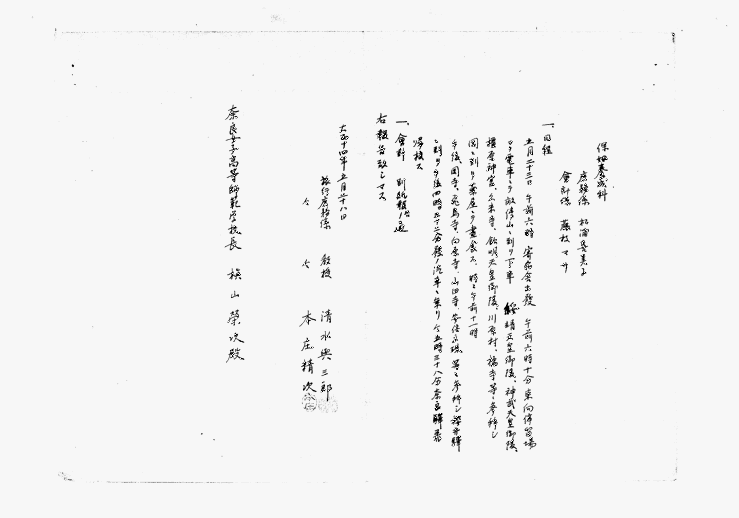 保姆養成科
庶務係 松浦喜美子
會計係 藤枝マサ
一、日程
五月二十三日 午前六時 寄宿舎出發 午前六時十分東向停留場
ヨリ電車ニテ畝傍山ニ到リ下車 綏靖天皇御陵、神武天皇御陵、
橿原神宮、久米寺、欽明天皇御陵、川原村、橘寺等ニ參拝シ
岡ニ到リ茶屋ニテ晝食ス、時ニ午前十一時
午後、岡寺、飛鳥寺、向原寺、山田寺、安倍文珠等ニ參拝シ櫻井驛
ニ到リ午後四時五十二分發ノ汽車ニ乗リ仝五時三十八分奈良驛着
帰校ス
一、會計 別紙報告ノ通
右報告致シマス
大正十四年五月二十八日
旅行庶務係 教授 清水與三郎
仝 仝 本庄精次
奈良女子高等師範学校長 槇山榮次殿